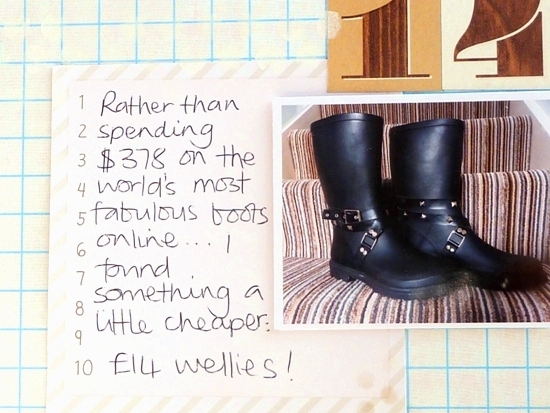 14
1 Rather than
2 spending
3 $378 on the
4 world's most
5 fabulous boots
6 online... I
7 found
8 something a
9 little cheaper.
10 £14 wellies!